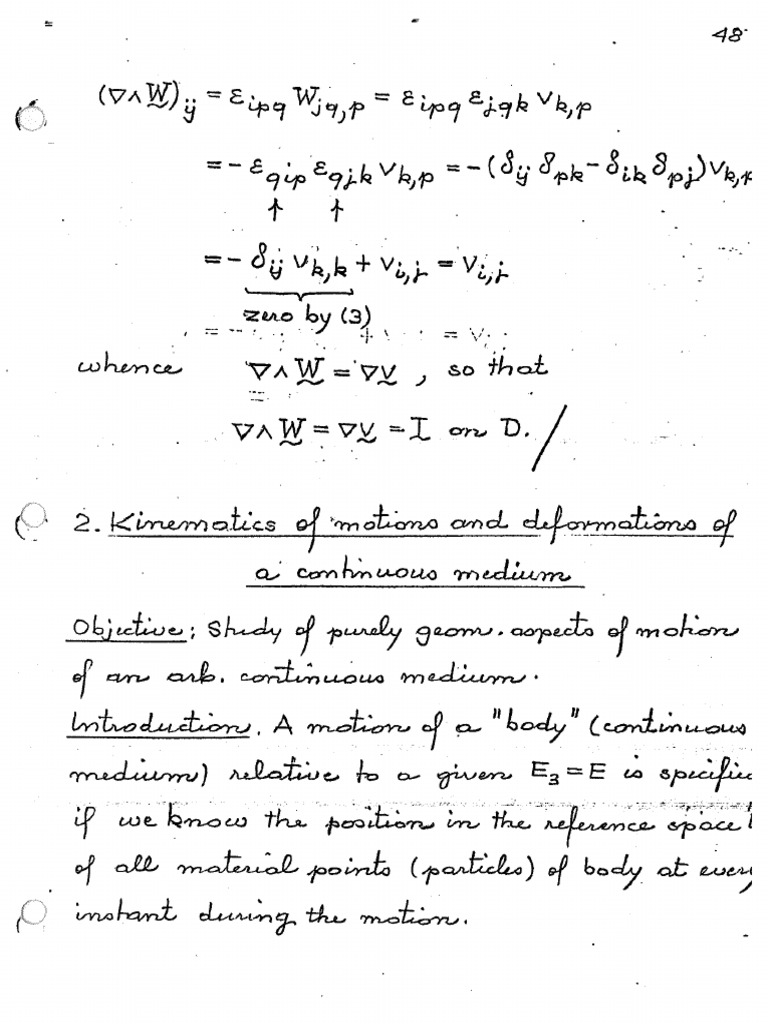 48
(∇∧W̰)ij = εipq Wjq,p = εipq εjqk vk,p
= - εqip εqjk vk,p = -(δij δpk - δik δpj) vk,p
↑ ↑
= - δij vk,k + vi,j = vi,j
zero by (3)
whence ∇∧W̰ = ∇v̰ , so that
∇∧W̰ = ∇v̰ = Ḭ on D. /
2. Kinematics of motions and deformations of
a continuous medium
Objective: Study of purely geom. aspects of motion
of an arb. continuous medium.
Introduction. A motion of a "body" (continuous
medium) relative to a given E3 = E is specifie
if we know the position in the reference space
of all material points (particles) of body at every
instant during the motion.